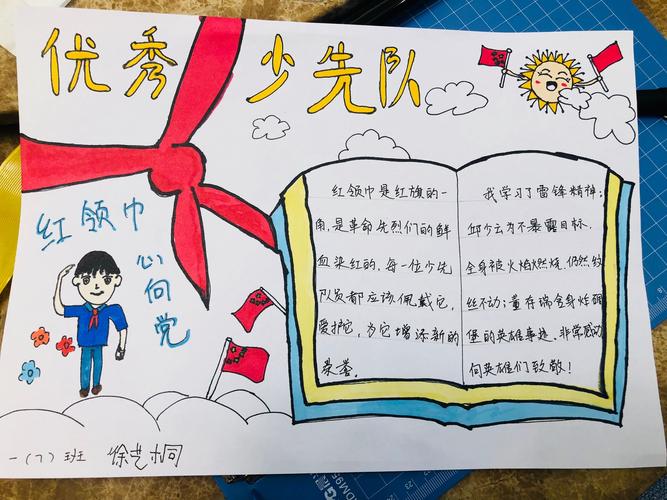 优秀少先队
红领巾
心向党
红领巾是红旗的一
角,是革命先烈们的鲜
血染红的,每一位少先
队员都应该佩戴它,
爱护它,为它增添新的
荣誉.
我学习了雷锋精神;
邱少云为不暴露目标,
全身被火焰燃烧,仍然纹
丝不动;董存瑞舍身炸碉
堡的英雄事迹,非常感动
向英雄们致敬!
一(7)班 徐艺桐